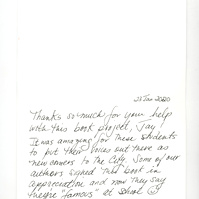 21 Jan 2020
Thanks so much for your help
with this book project, Jay
It was amazing for these students
to put their voices out there as
newcomers to the City. Some of our
authors signed this book in
appreciation and now they say
they're famous at school